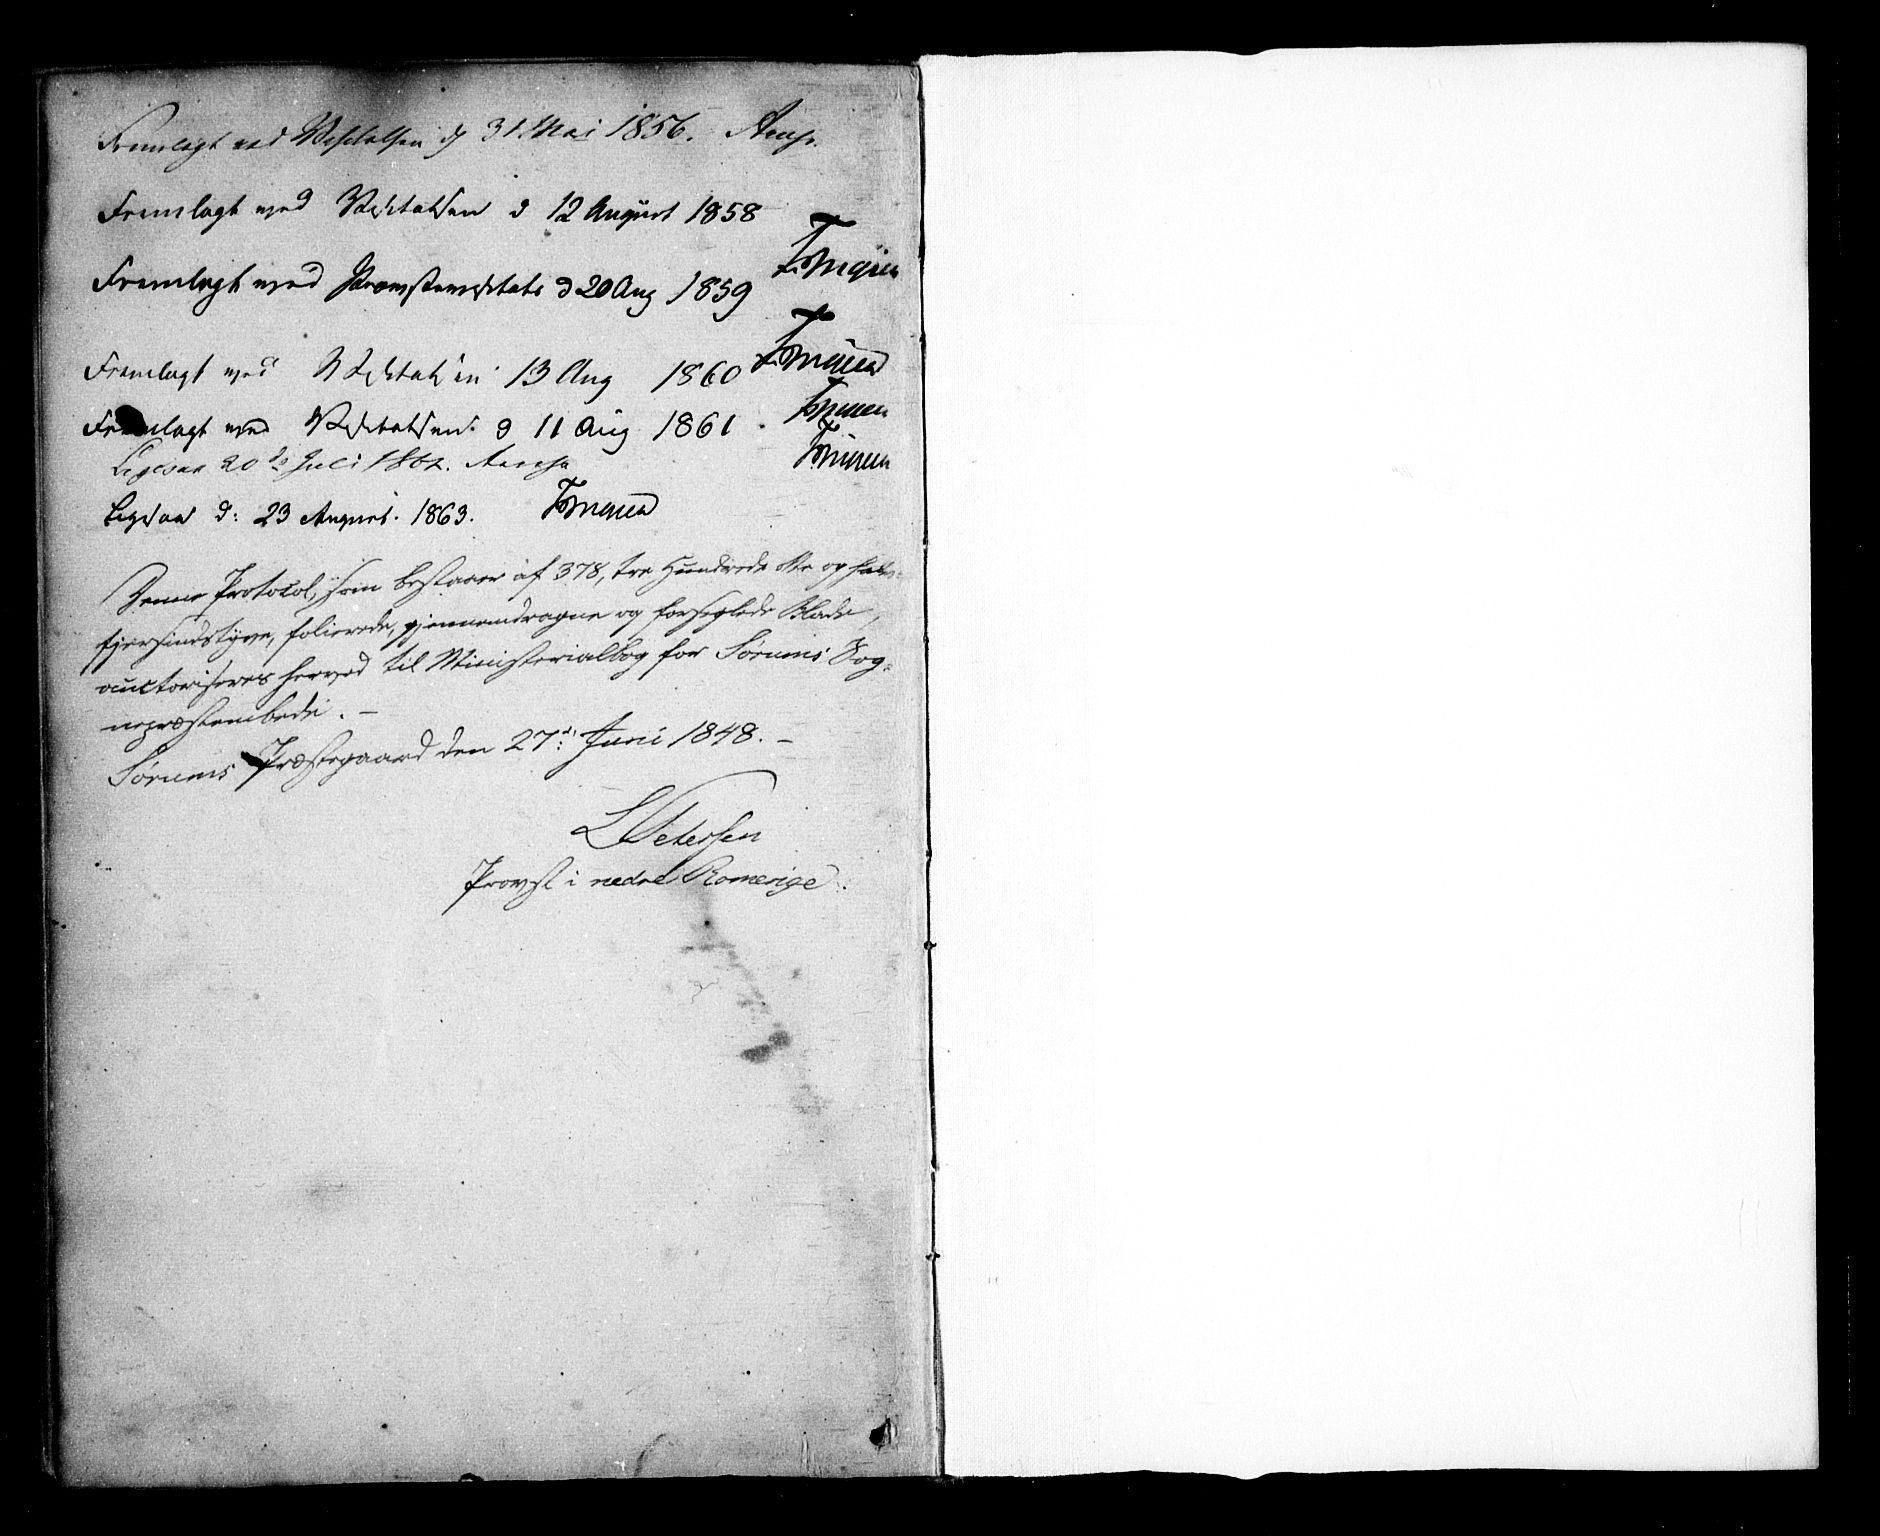 Fremlagt ved Visitatsen d 31. Mai 1856. Arup.
Fremlagt ved Visitatsen d 12 August 1858
Fremlagt ved Provstevisitats d 20 Aug 1859
Fremlagt ved Visitatsen 13 Aug 1860
Fremlagt ved Visitatsen d 11 Aug 1861.
Ligesaa 20de Juli 1862. Arup
Ligesaa d: 23 August. 1863.
Denne Protocol, som bestaaer af 378, tre Hundrede otte og halv-
fjersindstyve, folierede, gjennemdragne og forseglede Blade,
auctoriseres herved til Ministerialbog for Sørums Sog-
nepræstembede. -
Sørums Præstegaard den 27d: Juni 1848. -
L Petersen
Provst i nedre Romerige.